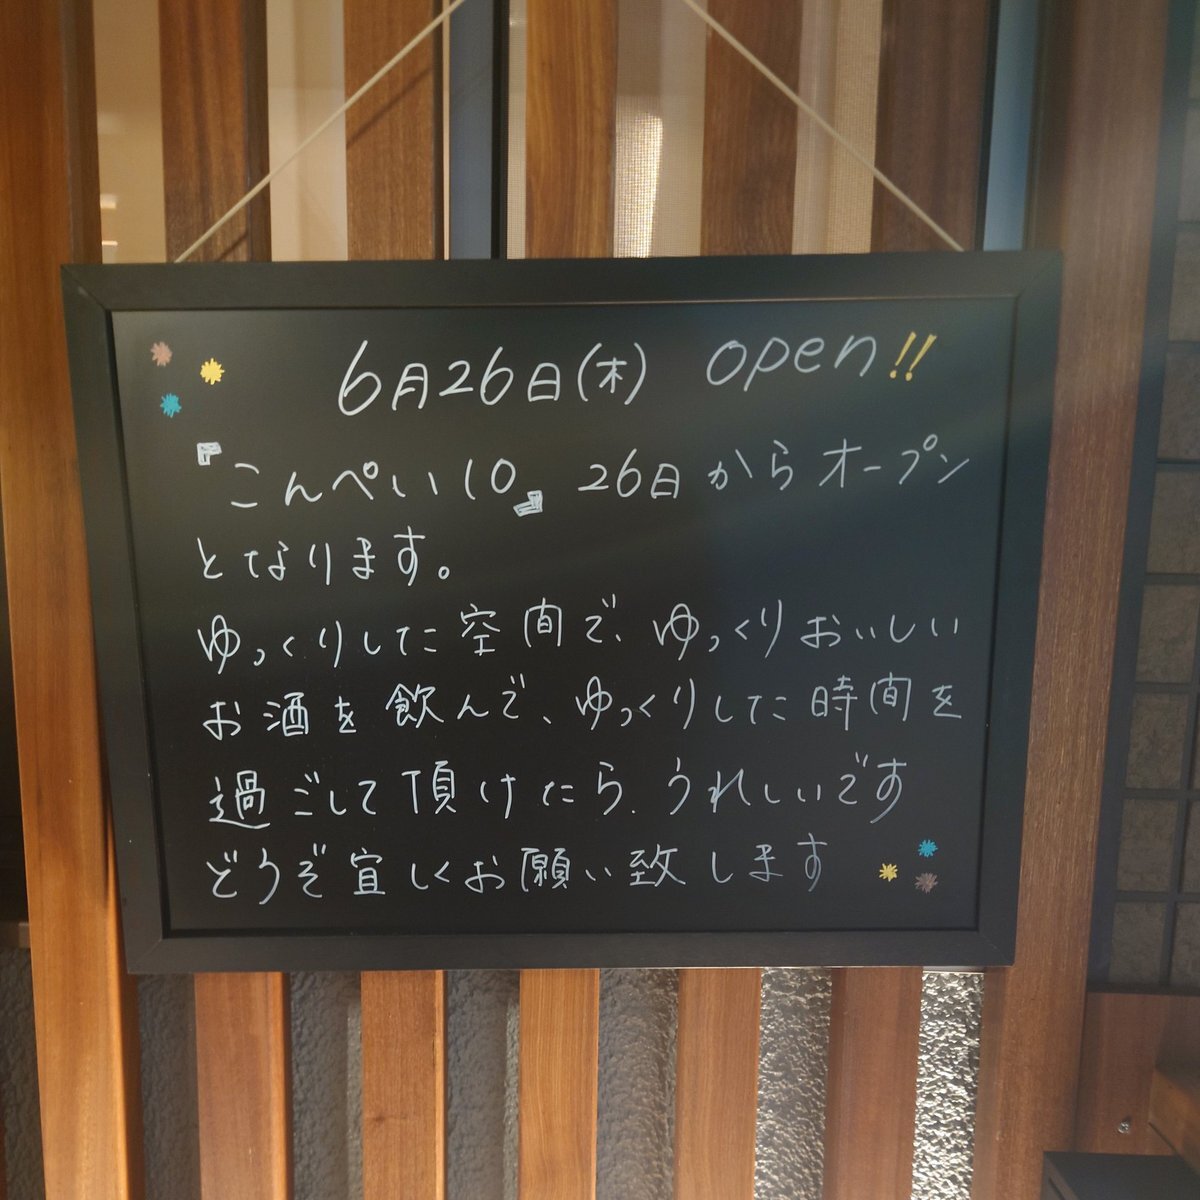 6月26日(木) open!!
『こんぺい10』 26日からオープン
となります。
ゆっくりした空間で、ゆっくりおいしい
お酒を飲んで、ゆっくりした時間を
過ごして頂けたら、うれしいです
どうぞ宜しくお願い致します